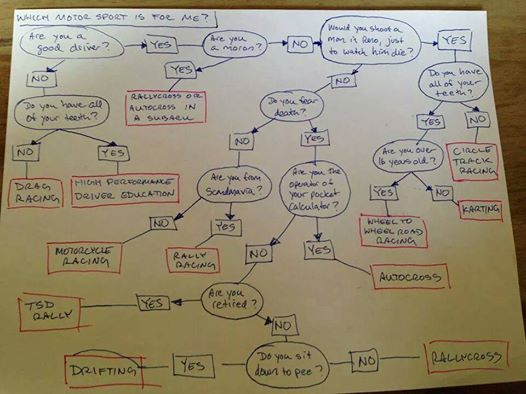 WHICH MOTOR SPORT IS FOR ME?
Are you a
good driver?
YES
Are you
a moron?
NO
Would you shoot a
man in Reno, just
to watch him die?
YES
NO
YES
NO
Do you have
all of your
teeth?
Do you have all
of your teeth?
RALLYCROSS OR
AUTOCROSS IN
A SUBARU
Do you fear
death?
NO
YES
NO
YES
YES
NO
Are you over
16 years old?
CIRCLE
TRACK
RACING
DRAG
RACING
HIGH PERFORMANCE
DRIVER EDUCATION
Are you from
Scandinavia?
Are you the
operator of
your pocket
calculator?
YES
NO
KARTING
NO
YES
WHEEL TO
WHEEL ROAD
RACING
MOTORCYCLE
RACING
RALLY
RACING
NO
YES
AUTOCROSS
TSD
RALLY
YES
Are you
retired?
NO
DRIFTING
YES
Do you sit
down to pee?
NO
RALLYCROSS